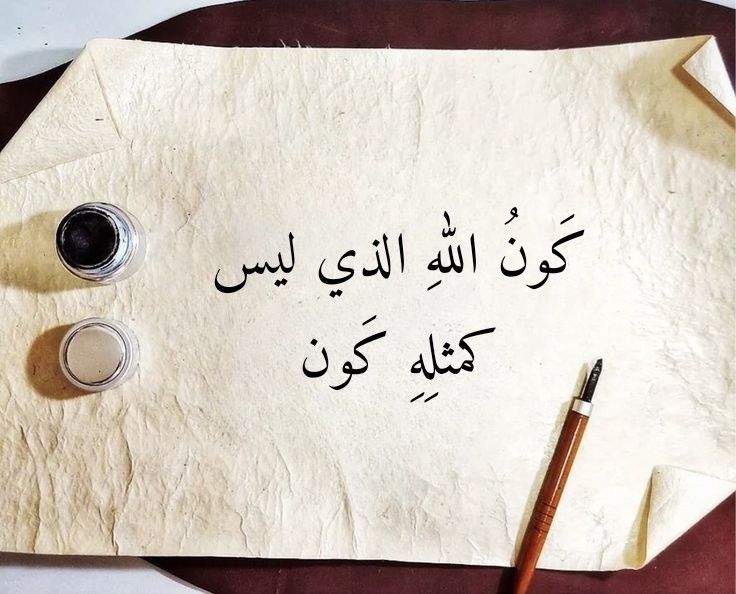 كَونُ اللهِ الذي ليس
كمثلِهِ كَون